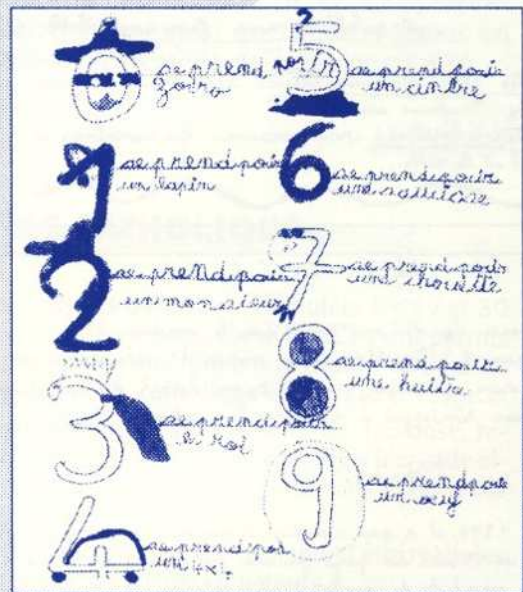 0
se prend pour
zorro
1
se prend pour
un lapin
2
se prend pour
un monsieur
3
se prend pour
le roi
4
se prend pour
un 4x4
5
se prend pour
un cintre
6
se prend pour
une
7
se prend pour
une
8
se prend pour
une huitre
9
se prend pour
un